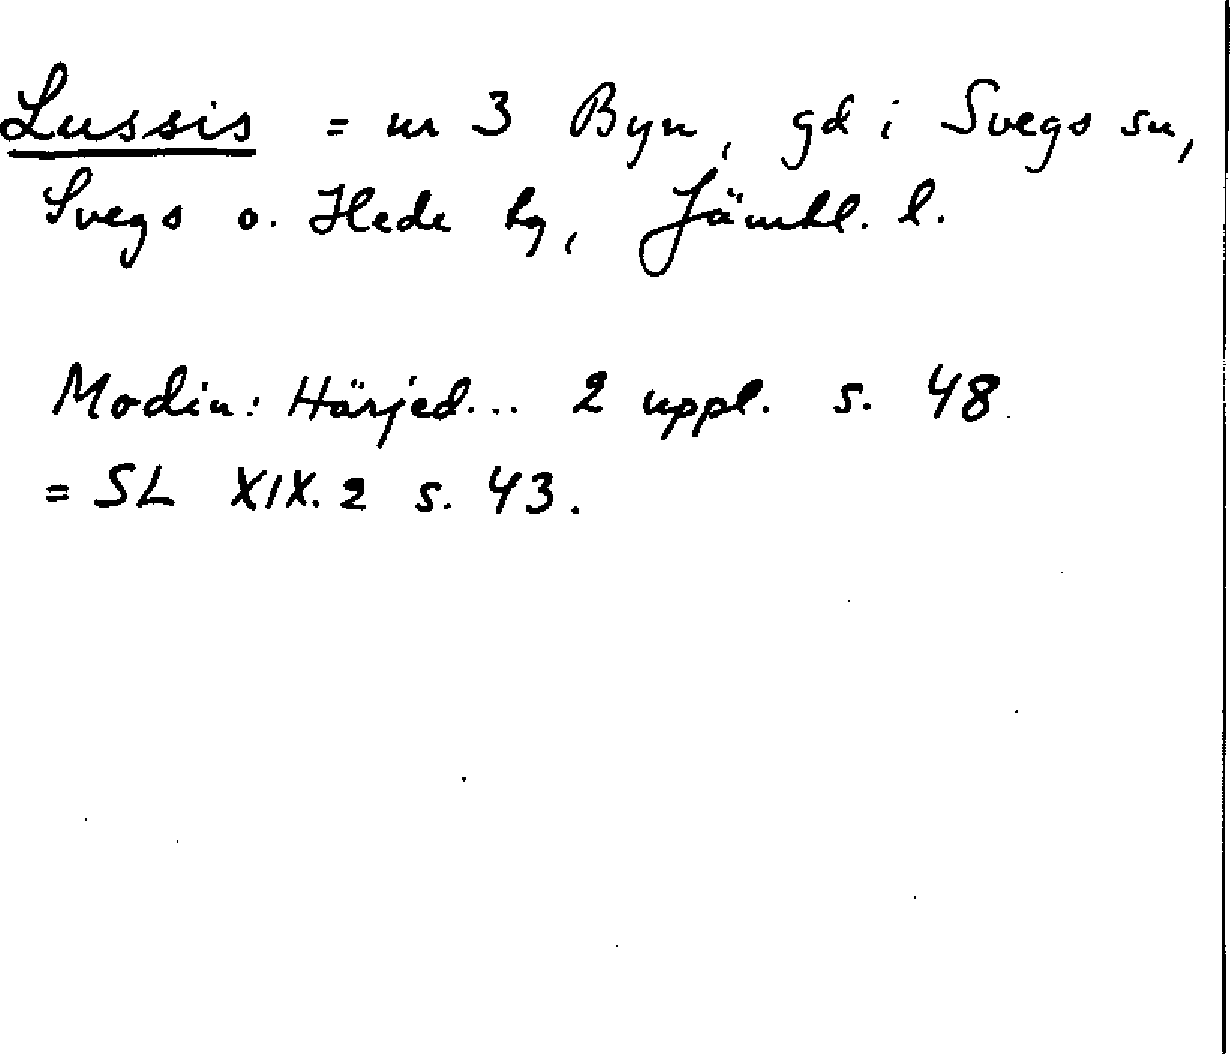 Lussis = nr 3 Byn, gd i Svegs sn,
Svegs o. Hede tg, Jämtl. l.
Modin: Härjed... 2 uppl. s. 48
= SL XIX.2 s. 43.